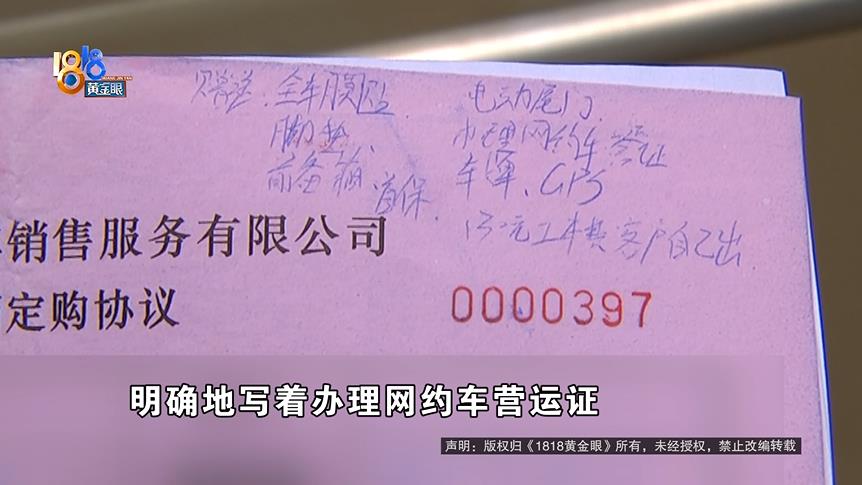 1818
黄金眼
赠送、全车膜 电动尾门
脚垫、 办理网约车
备箱 首保、 车罩、GPS
元工本费客户自己出
销售服务有限公司
定购协议 0000397
明确地写着办理网约车营运证
声明：版权归《1818黄金眼》所有，未经授权，禁止改编转载